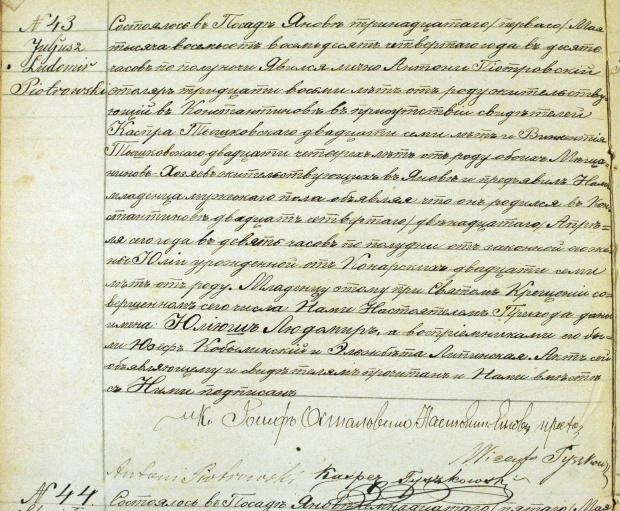 № 43
Juljusz
Ludomir
Piotrowski
Состоялось въ Посадѣ Яновѣ тринадцатаго /перваго/ Мая
тысяча восемьсотъ восемьдесятъ четвертаго года въ десять
часовъ по полуночи. Явился лично Антони Піотровскій
столяръ тридцати восьми лѣтъ отъ роду жительству-
ющій въ Константиновѣ въ присутствіи свидѣтелей
Каспра двадцати семи лѣтъ и Викентія
двадцати четырехъ лѣтъ отъ роду обоихъ Мѣща-
ниновъ-Хозяевъ жительствующихъ въ Яновѣ и предъявилъ Намъ
младенца мужескаго пола объявляя что онъ родился въ Кон-
стантиновѣ двадцать четвертаго /двѣнадцатаго/ Апрѣ-
ля сего года въ девять часовъ по полудни отъ законной его же-
ны Юліи урожденной отъ Конарскихъ двадцати семи
лѣтъ отъ роду. Младенцу этому при Святомъ Крещеніи со-
вершенномъ сего числа Нами Настоятелемъ Прихода даны
имена Юліюшъ Людомиръ, а воспріемниками его бы-
ли Юзефъ Кобылинскій и Эльжбѣта Липинская. Актъ сей
объявляющему и свидѣтелямъ прочитанъ и Нами вмѣстѣ
съ Ними подписанъ
Antoni Piotrowski Kasper
№ 44.
Состоялось въ Посадѣ Яновѣ /пятаго/ Мая